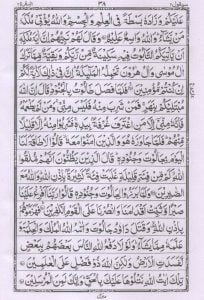 سیقول ٢ ٣٨ البقرة ٢
عَلَيْكُمْ وَزَادَهٗ بَسْطَةً فِي الْعِلْمِ وَالْجِسْمِ وَاللّٰهُ يُؤْتِيْ مُلْكَهٗ
مَنْ يَّشَآءُ وَاللّٰهُ وَاسِعٌ عَلِيْمٌ وَقَالَ لَهُمْ نَبِيُّهُمْ اِنَّ اٰيَةَ مُلْكِهٖٓ
اَنْ يَّاْتِيَكُمُ التَّابُوْتُ فِيْهِ سَكِيْنَةٌ مِّنْ رَّبِّكُمْ وَبَقِيَّةٌ مِّمَّا تَرَكَ
اٰلُ مُوْسٰى وَاٰلُ هٰرُوْنَ تَحْمِلُهُ الْمَلٰٓئِكَةُ اِنَّ فِيْ ذٰلِكَ لَاٰيَةً لَّكُمْ
اِنْ كُنْتُمْ مُّؤْمِنِيْنَ فَلَمَّا فَصَلَ طَالُوْتُ بِالْجُنُوْدِ قَالَ اِنَّ اللّٰهَ
مُبْتَلِيْكُمْ بِنَهَرٍ فَمَنْ شَرِبَ مِنْهُ فَلَيْسَ مِنِّيْ وَمَنْ لَّمْ يَطْعَمْهُ
فَاِنَّهٗ مِنِّيْٓ اِلَّا مَنِ اغْتَرَفَ غُرْفَةً بِيَدِهٖ فَشَرِبُوْا مِنْهُ اِلَّا قَلِيْلًا
مِّنْهُمْ فَلَمَّا جَاوَزَهٗ هُوَ وَالَّذِيْنَ اٰمَنُوْا مَعَهٗ قَالُوْا لَا طَاقَةَ لَنَا
الْيَوْمَ بِجَالُوْتَ وَجُنُوْدِهٖ قَالَ الَّذِيْنَ يَظُنُّوْنَ اَنَّهُمْ مُّلٰقُوا
اللّٰهِ كَمْ مِّنْ فِئَةٍ قَلِيْلَةٍ غَلَبَتْ فِئَةً كَثِيْرَةً بِاِذْنِ اللّٰهِ وَاللّٰهُ مَعَ
الصّٰبِرِيْنَ وَلَمَّا بَرَزُوْا لِجَالُوْتَ وَجُنُوْدِهٖ قَالُوْا رَبَّنَآ اَفْرِغْ عَلَيْنَا
صَبْرًا وَّثَبِّتْ اَقْدَامَنَا وَانْصُرْنَا عَلَى الْقَوْمِ الْكٰفِرِيْنَ فَهَزَمُوْهُمْ
بِاِذْنِ اللّٰهِ وَقَتَلَ دَاوٗدُ جَالُوْتَ وَاٰتٰىهُ اللّٰهُ الْمُلْكَ وَالْحِكْمَةَ وَ
عَلَّمَهٗ مِمَّا يَشَآءُ وَلَوْلَا دَفْعُ اللّٰهِ النَّاسَ بَعْضَهُمْ بِبَعْضٍ
لَّفَسَدَتِ الْاَرْضُ وَلٰكِنَّ اللّٰهَ ذُوْ فَضْلٍ عَلَى الْعٰلَمِيْنَ
تِلْكَ اٰيٰتُ اللّٰهِ نَتْلُوْهَا عَلَيْكَ بِالْحَقِّ وَاِنَّكَ لَمِنَ الْمُرْسَلِيْنَ